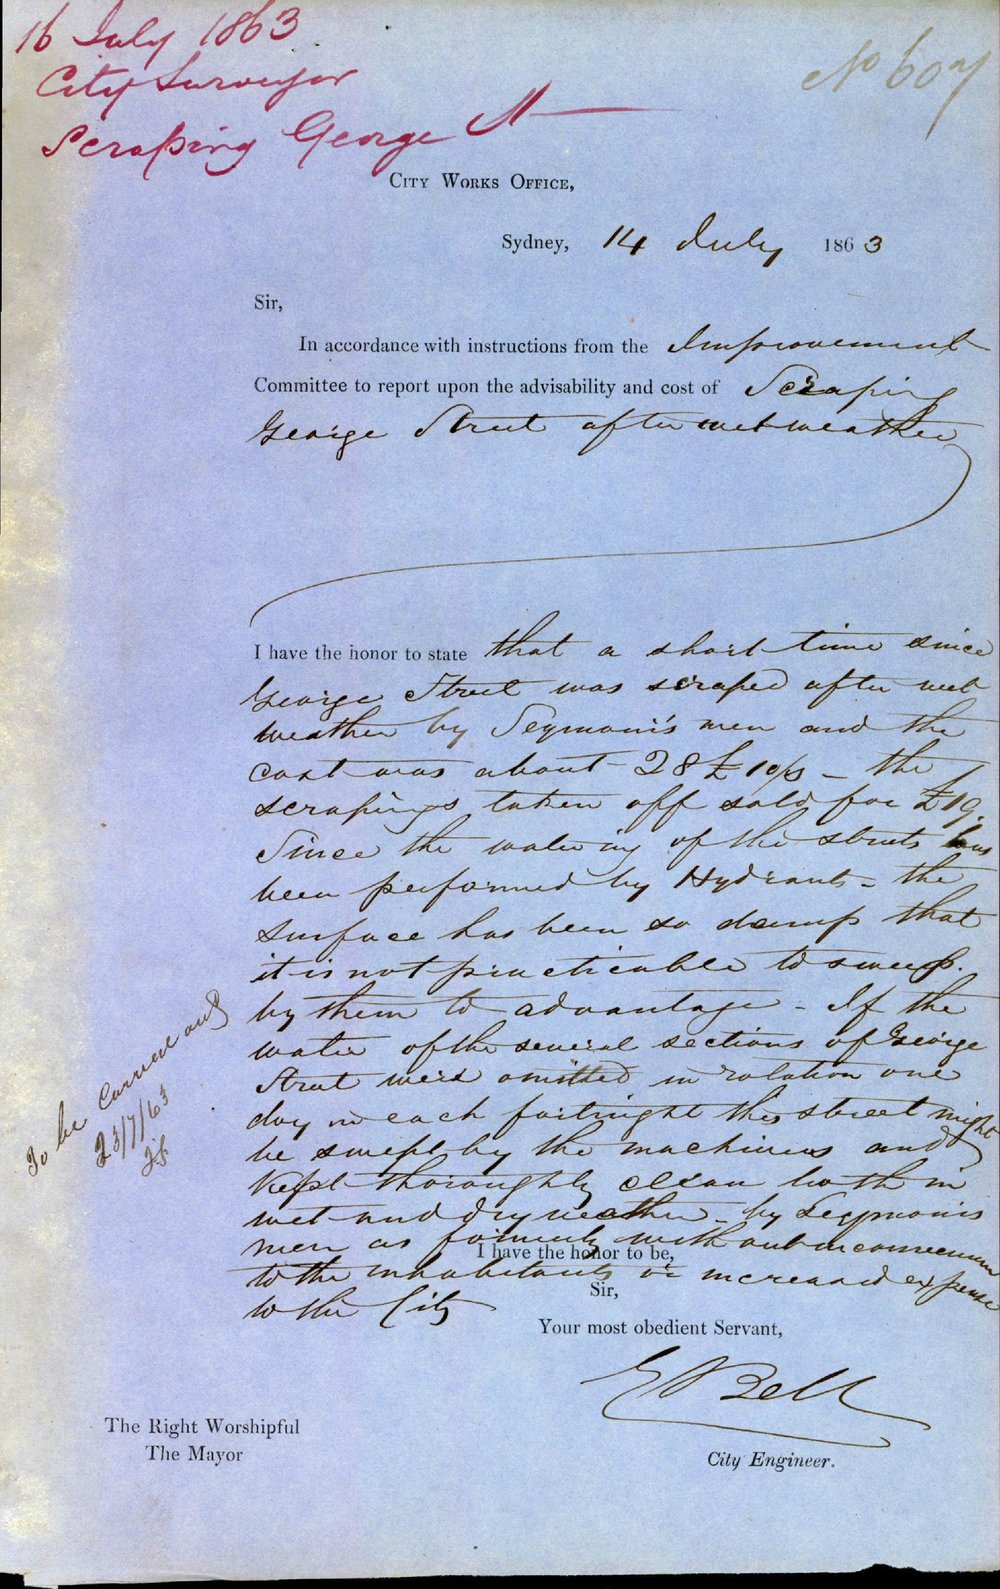 16 July 1863
City Surveyor
Scraping George St
No 607
City Works Office,
Sydney, 14 July 1863
Sir,
In accordance with instructions from the Improvement
Committee to report upon the advisability and cost of Scraping
George Street after wet weather
I have the honor to state that a short time since
George Street was scraped after wet
weather by Seymour's men and the
cost was about 28£ 10/s - the
scrapings taken off sold for £19.
Since the watering of the streets has
been performed by Hydrants - the
surface has been so damp that
it is not practicable to sweep.
by them to advantage - If the
water of the several sections of George
Street were omitted in rotation one
day in each fortnight this street might
be swept by the machines and
kept thoroughly clean both in
wet and dry weather - by Seymour's
men as formerly without inconvenience
to the inhabitants or increased expense
to the City
To be carried out
23/7/63
I have the honor to be,
Sir,
Your most obedient Servant,
E Bell
City Engineer.
The Right Worshipful
The Mayor